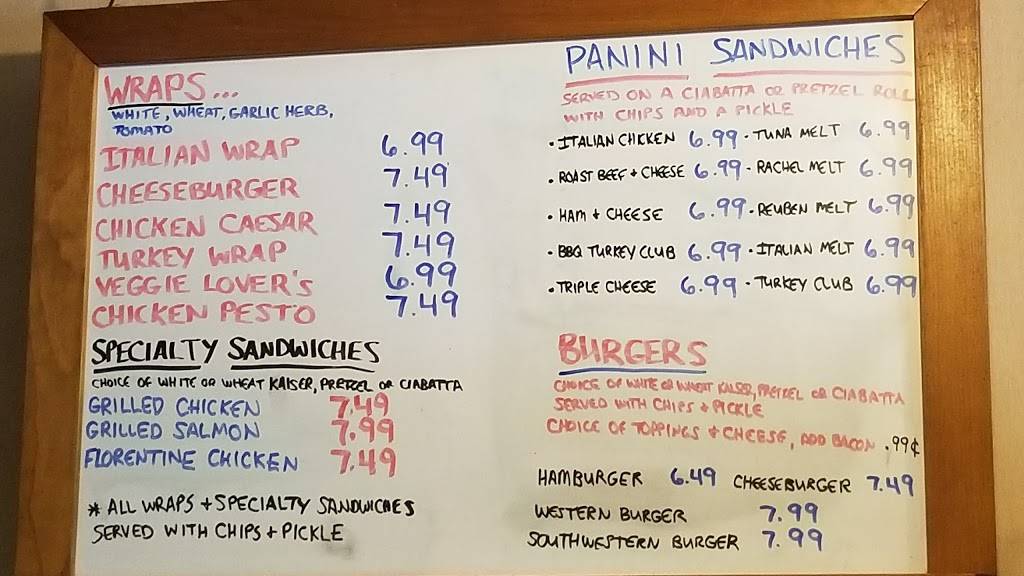 WRAPS...
WHITE, WHEAT, GARLIC HERB,
TOMATO
ITALIAN WRAP 6.99
CHEESEBURGER 7.49
CHICKEN CAESAR 7.49
TURKEY WRAP 7.49
VEGGIE LOVER'S 6.99
CHICKEN PESTO 7.49
SPECIALTY SANDWICHES
CHOICE OF WHITE OR WHEAT KAISER, PRETZEL OR CIABATTA
GRILLED CHICKEN 7.49
GRILLED SALMON 7.99
FLORENTINE CHICKEN 7.49
* ALL WRAPS + SPECIALTY SANDWICHES
SERVED WITH CHIPS + PICKLE
PANINI SANDWICHES
SERVED ON A CIABATTA OR PRETZEL ROLL
WITH CHIPS AND A PICKLE
• ITALIAN CHICKEN 6.99 • TUNA MELT 6.99
• ROAST BEEF + CHEESE 6.99 • RACHEL MELT 6.99
• HAM + CHEESE 6.99 • REUBEN MELT 6.99
• BBQ TURKEY CLUB 6.99 • ITALIAN MELT 6.99
• TRIPLE CHEESE 6.99 • TURKEY CLUB 6.99
BURGERS
CHOICE OF WHITE OR WHEAT KAISER, PRETZEL OR CIABATTA
SERVED WITH CHIPS + PICKLE
CHOICE OF TOPPINGS + CHEESE, ADD BACON .99¢
HAMBURGER 6.49 CHEESEBURGER 7.49
WESTERN BURGER 7.99
SOUTHWESTERN BURGER 7.99